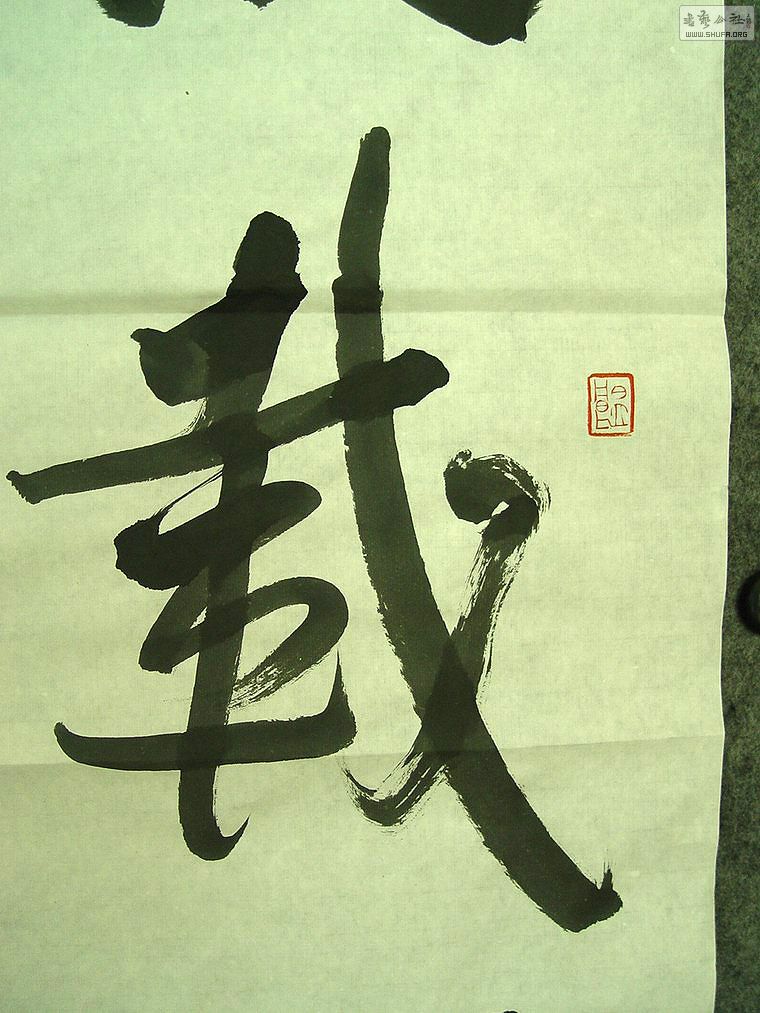 載
书艺公社
WWW.SHUFA.ORG